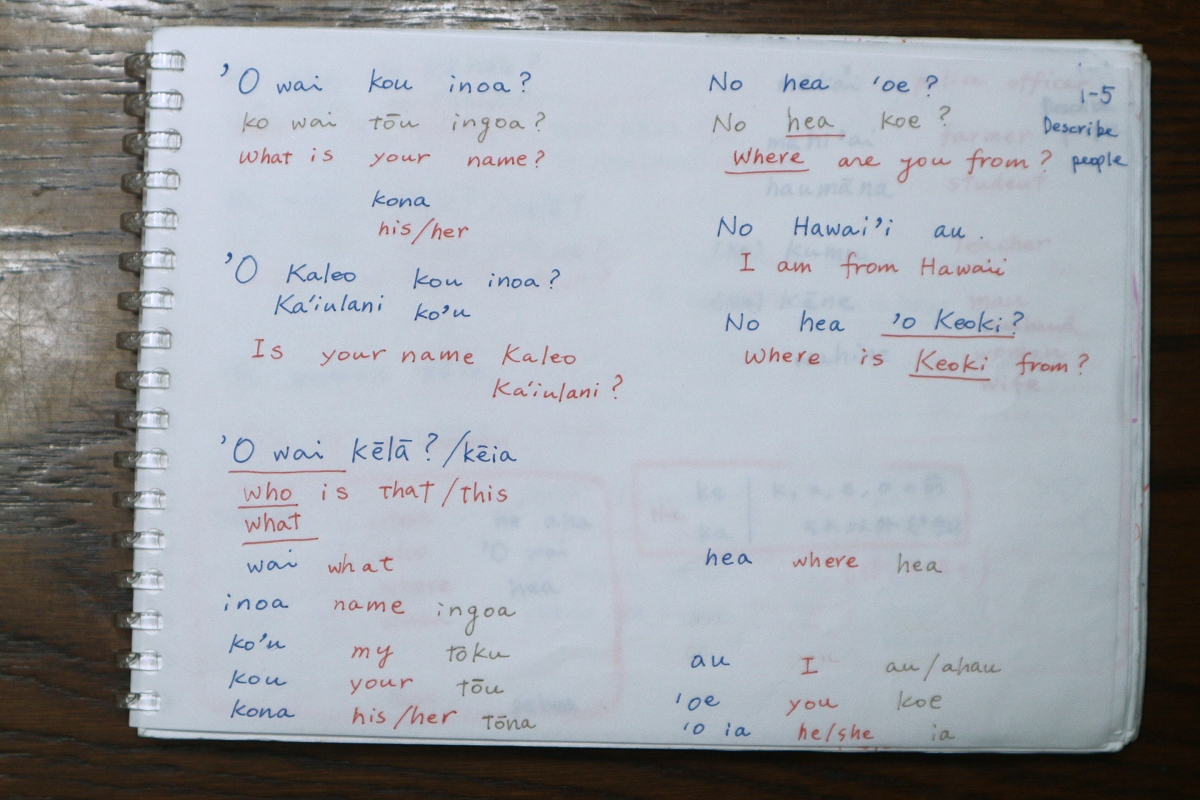 'O wai kou inoa?
ko wai tōu ingoa?
What is your name?
kona
his/her
'O Kaleo kou inoa?
Ka'iulani ko'u
Is your name Kaleo
Ka'iulani?
'O wai kēlā?/kēia
who is that/this
what
wai what
inoa name ingoa
ko'u my tōku
kou your tōu
kona his/her tōna
No hea 'oe?
No hea koe?
Where are you from?
No Hawai'i au.
I am from Hawaii
No hea 'o Keoki?
Where is Keoki from?
hea where hea
au I au/ahau
'oe you koe
'o ia he/she ia
1-5
Describe
people